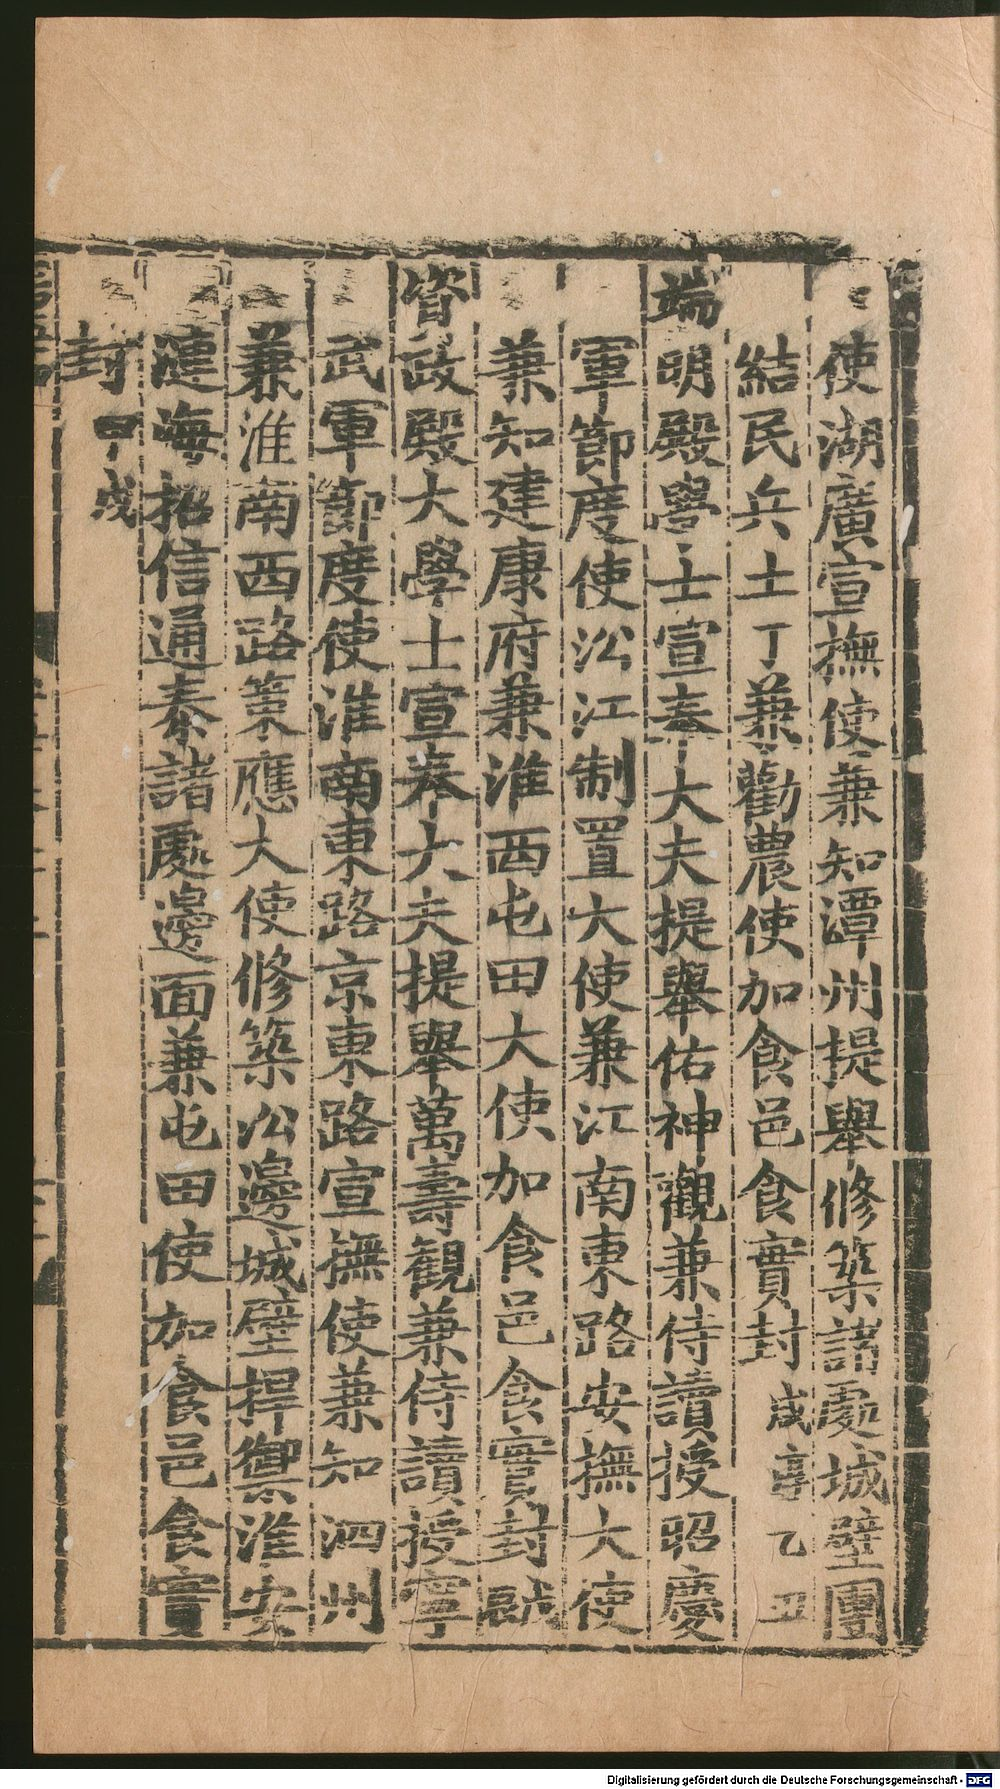 使湖廣宣撫使兼知潭州提舉修築諸處城壁團
結民兵土丁兼勸農使加食邑食實封咸淳乙丑
端明殿學士宣奉大夫提舉佑神觀兼侍讀授昭慶
軍節度使沿江制置大使兼江南東路安撫大使
兼知建康府兼淮西屯田大使加食邑食實封
資政殿大學士宣奉大夫提舉萬壽觀兼侍讀授寧
武軍節度使淮南東路京東路宣撫使兼知泗州
兼淮南西路策應大使修築沿邊城壁捍禦淮安
漣海招信通泰諸處邊面兼屯田使加食邑食實
封甲戌
Digitalisierung gefördert durch die Deutsche Forschungsgemeinschaft - DFG